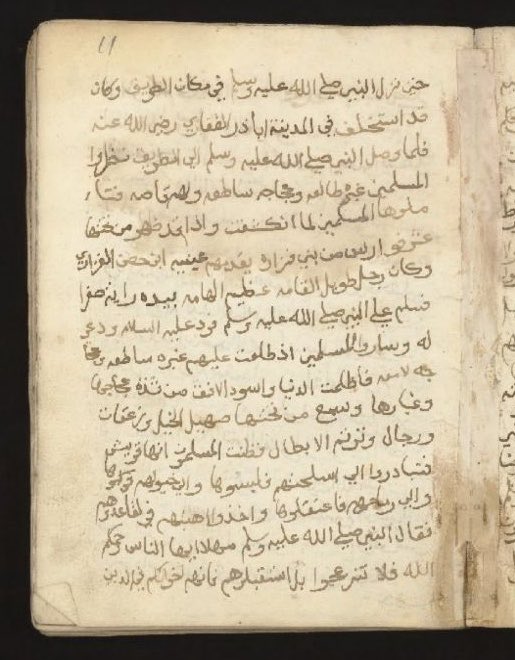 ١١
حتى نزل النبي صلي الله عليه وسلم في مكان الطريق وكان
قد استخلف في المدينة اباذر الغفاري رضي الله عنه
فلما وصل النبي صلي الله عليه وسلم الى الطريق نظروا
المسلمين غبره طالعه وعجاجه ساطعه
المسلمين لما انكشفت واذا قد ظهر من تحتها
فارس من بني فزارة يقدمهم عيينه ابن حصن الفزاري
وكان رجل طويل القامه عظيم الهامه بيده راية صفرا
فسلم علي النبي صلي الله عليه وسلم فرد عليه السلام ودعي
له وساروا المسلمين اذ طلعت عليهم غبره ساطعه
فأظلمت الدنيا واسود الافق من عجاجها
وغبارها وسمع من تحتها صهيل الخيل وزعقات
ورجال الابطال فظنت المسلمون انها قريش
فتبادروا الي اسلحتهم فلبسوها والي خيولهم فركبوها
والي رماحهم فاعتقلوها واخذوا اهبتهم
فقال النبي صلي الله عليه وسلم مهلا ايها الناس رحمكم
الله فلا تنزعجوا بل استقبلوهم فانهم اخوانكم في الدين